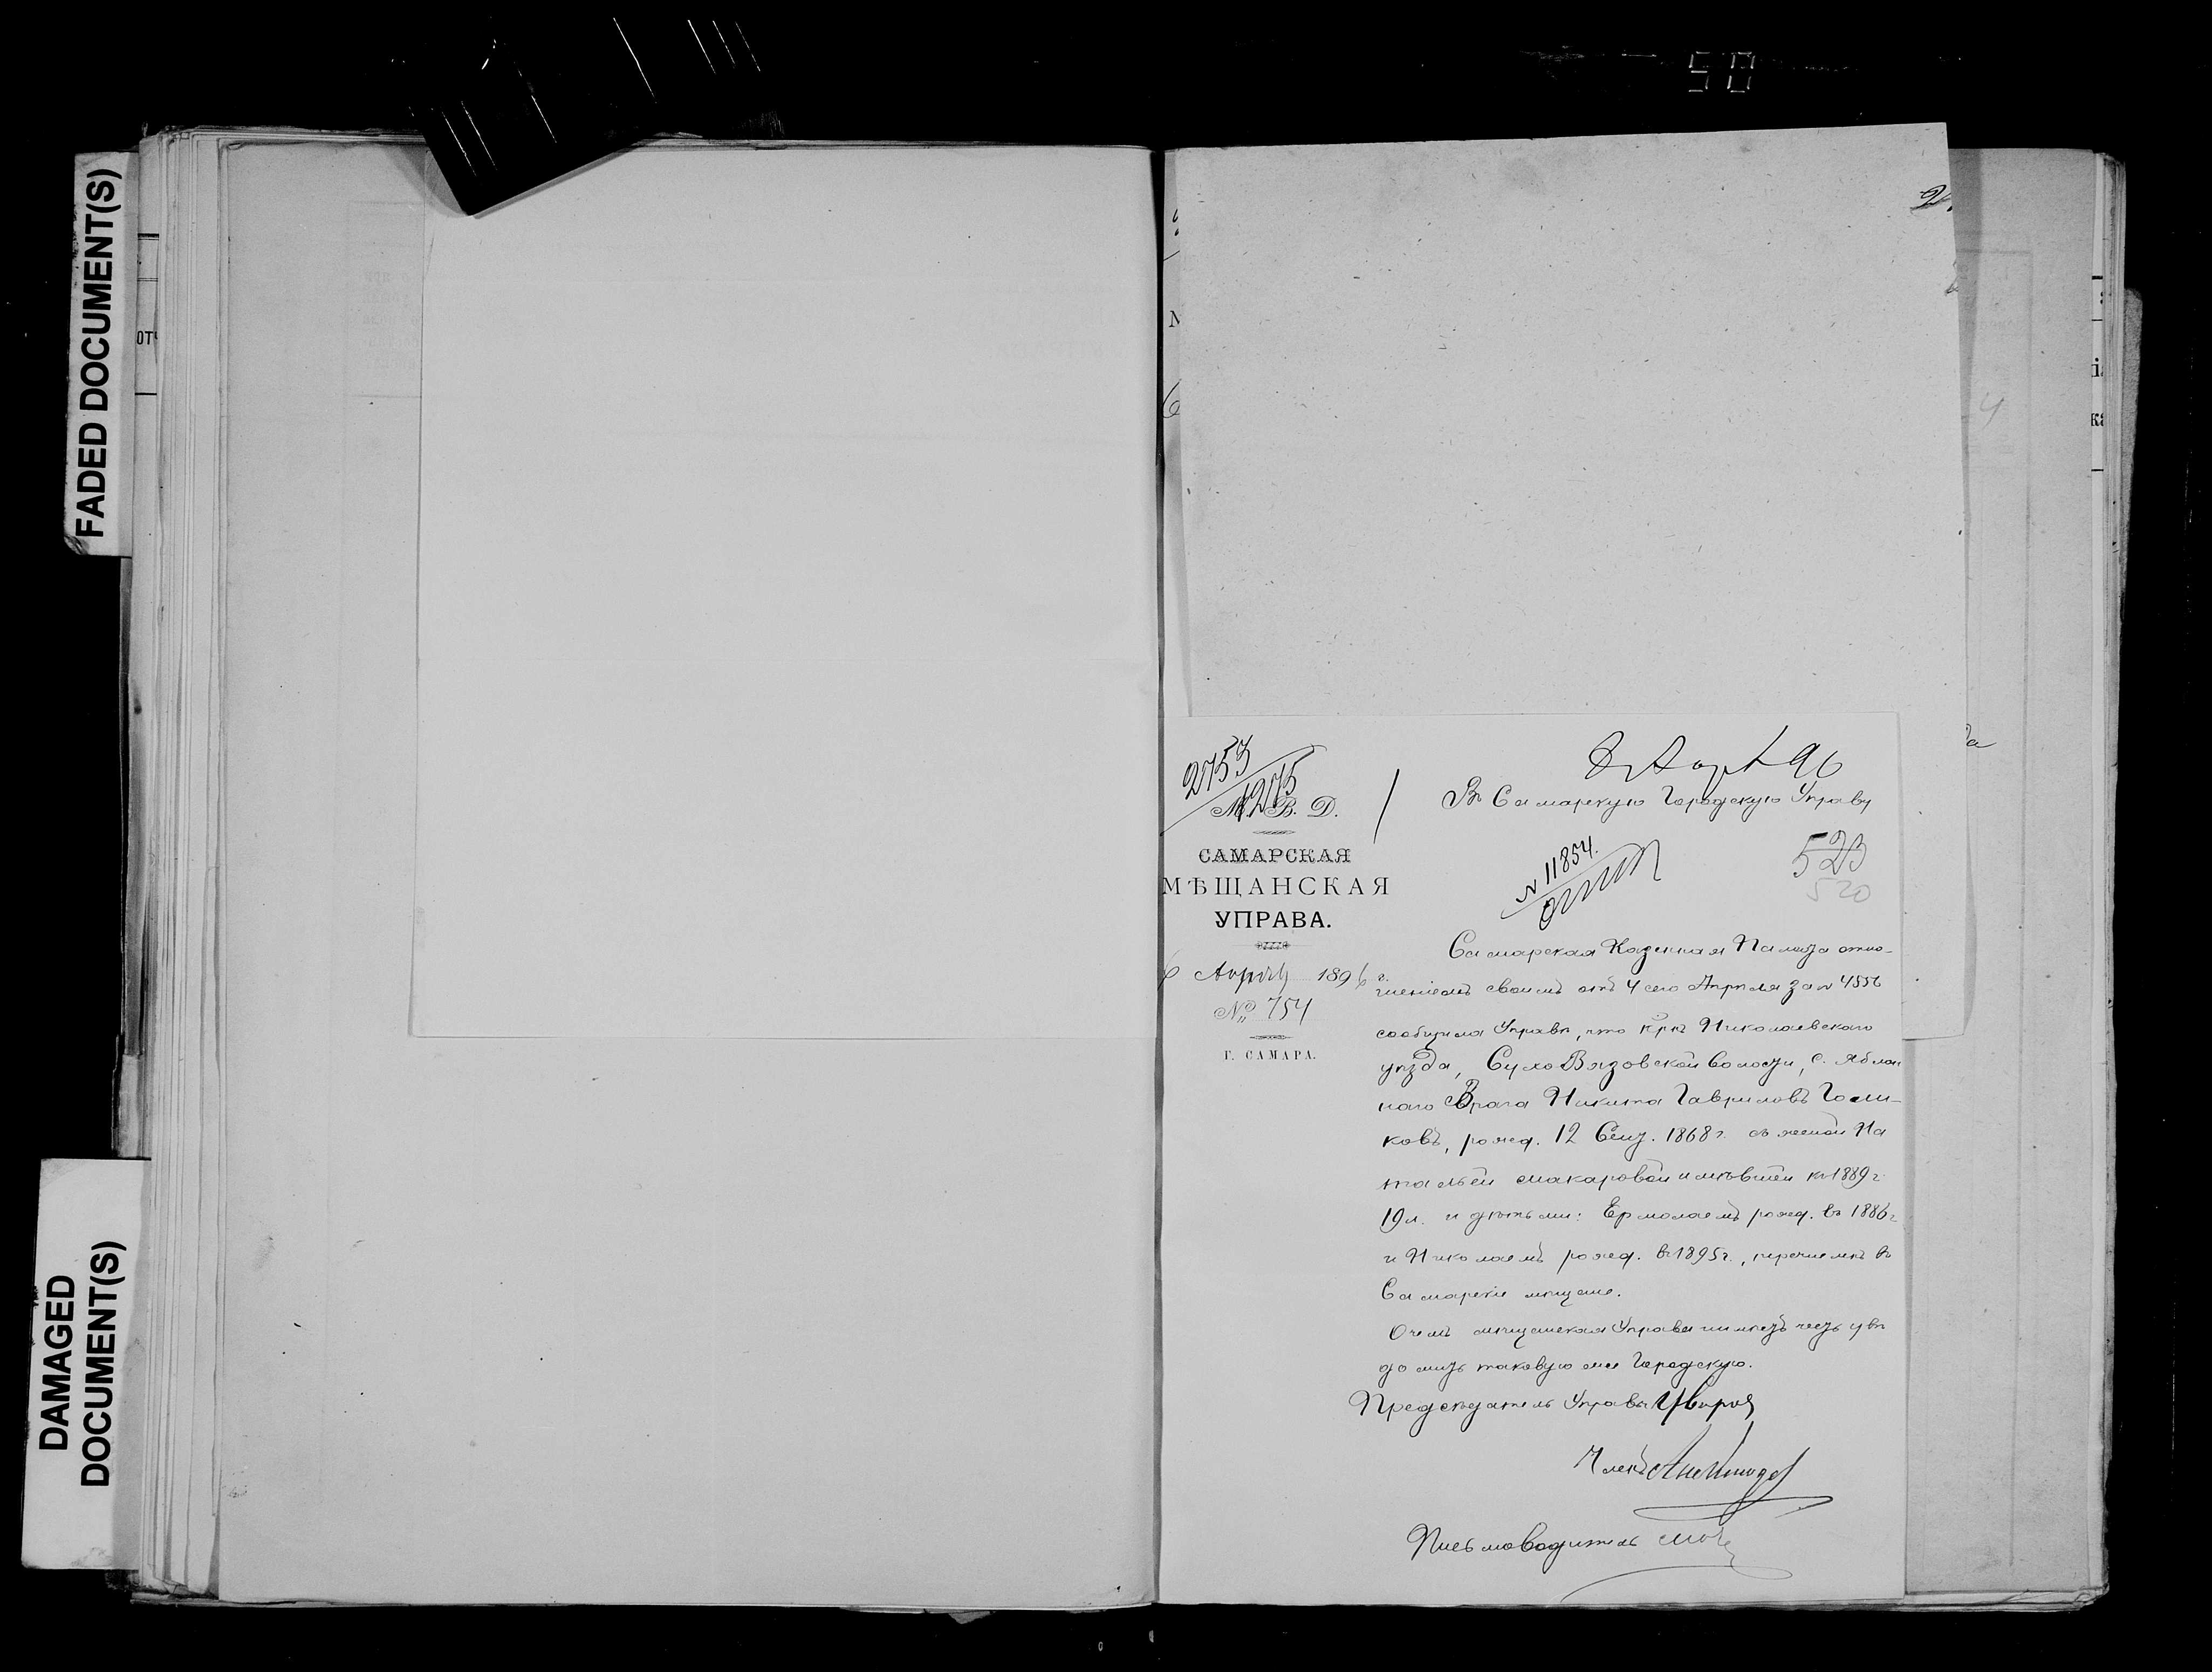 50
FADED DOCUMENT(S)
DAMAGED
DOCUMENT(S)
2753
1275
М. В. Д.
САМАРСКАЯ
МѢЩАНСКАЯ
УПРАВА.
6 Апрѣля 1896 г.
№ 754
Г. САМАРА.
96
Въ Самарскую Городскую Управу
№ 11854.
523
520
Самарская Казенная Палата отно-
шеніемъ своимъ отъ 4 сего Апрѣля за № 4556
сообщила Управѣ, что кр-нъ Николаевскаго
уѣзда, Сухо Вязовской волости, с. Яблон
наго Врага Никита Гавриловъ Голи-
ковъ, рожд. 12 Сент. 1868 г. съ женой На
тальей Макаровой имѣвшей къ 1889 г.
19 л. и дѣтьми: Ермолаемъ рожд. въ 1886 г
и Николаемъ рожд. въ 1895 г., перечисленъ въ
Самарскіе мѣщане.
О чемъ мѣщанская Управа имѣетъ честь увѣ
домить таковую же Городскую.
Предсѣдатель Управы
Членъ
Письмоводитель